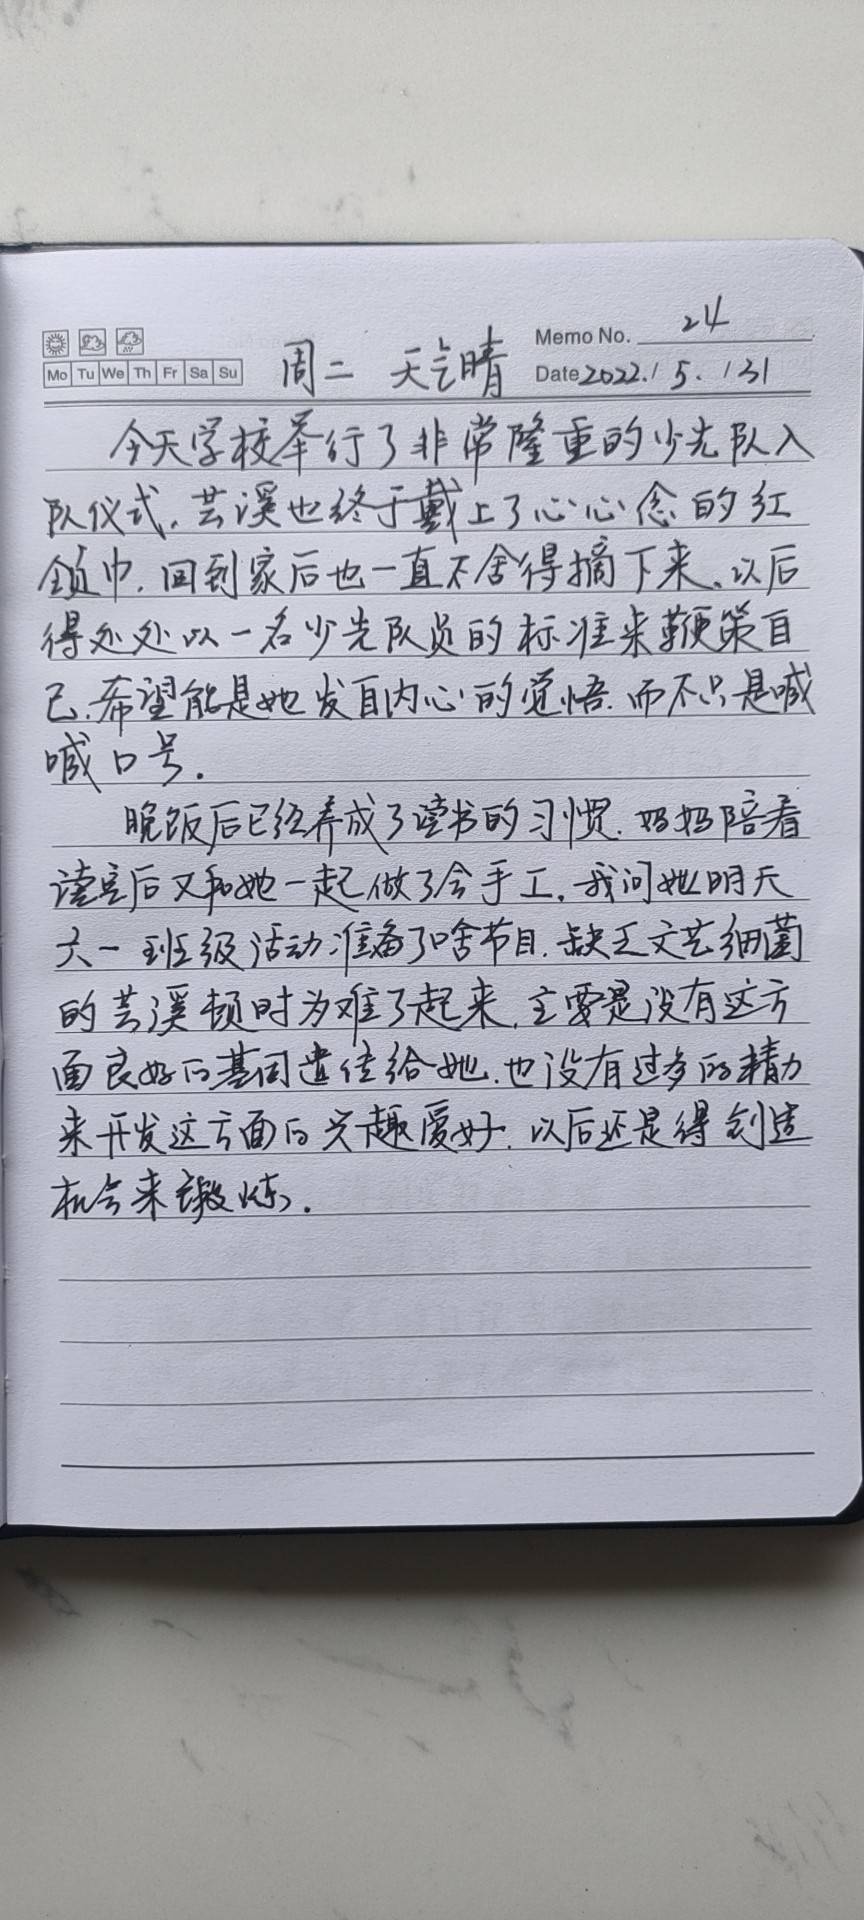 Memo No. 24
Mo Tu We Th Fr Sa Su
周二 天气晴
Date 2022./5./31
今天学校举行了非常隆重的少先队入
队仪式,芸溪也终于戴上了心心念的红
领巾,回到家后也一直不舍得摘下来,以后
得处处以一名少先队员的标准来鞭策自
己,希望能是她发自内心的觉悟,而不只是喊
喊口号.
晚饭后已经养成了读书的习惯,妈妈陪着
读完后又和她一起做了会手工,我问她明天
六一班级活动准备了啥节目,缺乏文艺细菌
的芸溪顿时为难了起来,主要是没有这方
面良好的基因遗传给她,也没有过多的精力
来开发这方面的兴趣爱好,以后还是得创造
机会来锻炼.